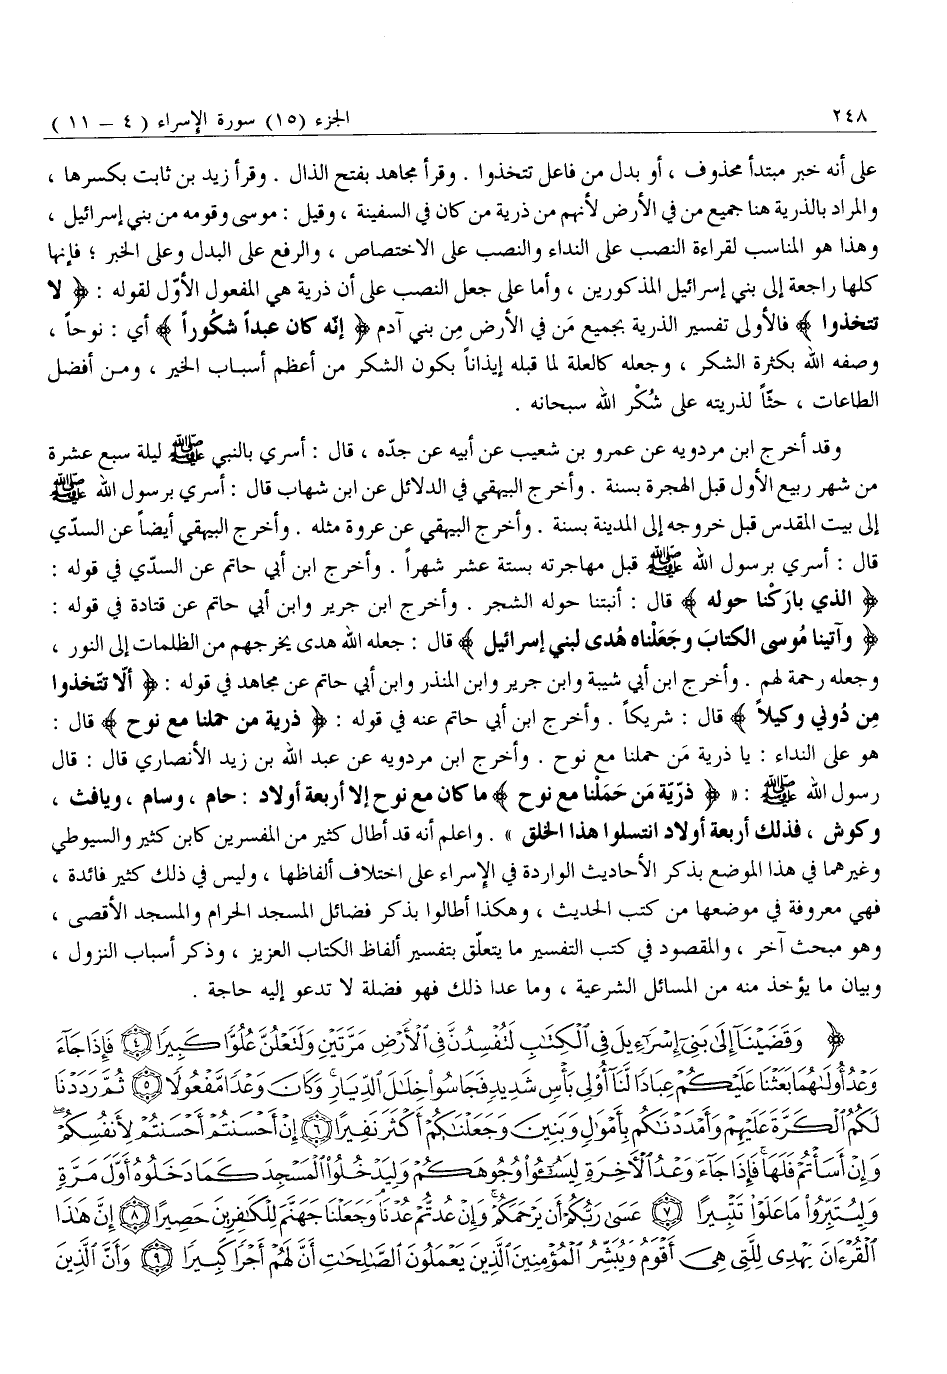 ٢٤٨ الجزء (١٥) سورة الإسراء ( ٤ – ١١ )
على أنه خبر مبتدأ محذوف ، أو بدل من فاعل تتخذوا . وقرأ مجاهد بفتح الذال . وقرأ زيد بن ثابت بكسرها ،
والمراد بالذرية هنا جميع من في الأرض لأنهم من ذرية من كان في السفينة ، وقيل : موسى وقومه من بني إسرائيل ،
وهذا هو المناسب لقراءة النصب على النداء والنصب على الاختصاص ، والرفع على البدل وعلى الخبر ؛ فإنها
كلها راجعة إلى بني إسرائيل المذكورين ، وأما على جعل النصب على أن ذرية هي المفعول الأوّل لقوله : ﴿ لا
تتخذوا ﴾ فالأولى تفسير الذرية بجميع مَن في الأرض مِن بني آدم ﴿ إنّه كان عبداً شكُوراً ﴾ أي : نوحاً ،
وصفه الله بكثرة الشكر ، وجعله كالعلة لما قبله إيذاناً بكون الشكر من أعظم أسباب الخير ، ومن أفضل
الطاعات ، حثّاً لذريته على شُكْر الله سبحانه .
وقد أخرج ابن مردويه عن عمرو بن شعيب عن أبيه عن جدّه ، قال : أسري بالنبي ﷺ ليلة سبع عشرة
من شهر ربيع الأول قبل الهجرة بسنة . وأخرج البيهقي في الدلائل عن ابن شهاب قال : أسري برسول الله ﷺ
إلى بيت المقدس قبل خروجه إلى المدينة بسنة . وأخرج البيهقي عن عروة مثله . وأخرج البيهقي أيضاً عن السدّي
قال : أسري برسول الله ﷺ قبل مهاجرته بستة عشر شهراً . وأخرج ابن أبي حاتم عن السدّي في قوله :
﴿ الذي بارَكْنا حوله ﴾ قال : أنبتنا حوله الشجر . وأخرج ابن جرير وابن أبي حاتم عن قتادة في قوله :
﴿ وآتينا مُوسى الكتابَ وجَعَلْناه هُدى لبني إسرائيل ﴾ قال : جعله الله هدى يخرجهم من الظلمات إلى النور ،
وجعله رحمة لهم . وأخرج ابن أبي شيبة وابن جرير وابن المنذر وابن أبي حاتم عن مجاهد في قوله : ﴿ ألّا تتّخذوا
مِن دُوني وكيلاً ﴾ قال : شريكاً . وأخرج ابن أبي حاتم عنه في قوله : ﴿ ذرية من حملنا مع نوح ﴾ قال :
هو على النداء : يا ذرية مَن حملنا مع نوح . وأخرج ابن مردويه عن عبد الله بن زيد الأنصاري قال : قال
رسول الله ﷺ : « ﴿ ذرّيّة مَن حَمَلْنا مع نوح ﴾ ما كان مع نوح إلا أربعة أولاد : حام ، وسام ، ويافث ،
وكوش ، فذلك أربعة أولاد انتسلوا هذا الخلق » . واعلم أنه قد أطال كثير من المفسرين كابن كثير والسيوطي
وغيرهما في هذا الموضع بذكر الأحاديث الواردة في الإسراء على اختلاف ألفاظها ، وليس في ذلك كثير فائدة ،
فهي معروفة في موضعها من كتب الحديث ، وهكذا أطالوا بذكر فضائل المسجد الحرام والمسجد الأقصى ،
وهو مبحث آخر ، والمقصود في كتب التفسير ما يتعلّق بتفسير ألفاظ الكتاب العزيز ، وذكر أسباب النزول ،
وبيان ما يؤخذ منه من المسائل الشرعية ، وما عدا ذلك فهو فضلة لا تدعو إليه حاجة .
﴿ وَقَضَيْنَآ إِلَىٰ بَنِىٓ إِسْرَٰٓءِيلَ فِى ٱلْكِتَٰبِ لَتُفْسِدُنَّ فِى ٱلْأَرْضِ مَرَّتَيْنِ وَلَتَعْلُنَّ عُلُوًّا كَبِيرًا ٤ فَإِذَا جَآءَ
وَعْدُ أُولَىٰهُمَا بَعَثْنَا عَلَيْكُمْ عِبَادًا لَّنَآ أُو۟لِى بَأْسٍ شَدِيدٍ فَجَاسُوا۟ خِلَٰلَ ٱلدِّيَارِ ۚ وَكَانَ وَعْدًا مَّفْعُولًا ٥ ثُمَّ رَدَدْنَا
لَكُمُ ٱلْكَرَّةَ عَلَيْهِمْ وَأَمْدَدْنَٰكُم بِأَمْوَٰلٍ وَبَنِينَ وَجَعَلْنَٰكُمْ أَكْثَرَ نَفِيرًا ٦ إِنْ أَحْسَنتُمْ أَحْسَنتُمْ لِأَنفُسِكُمْ ۖ
وَإِنْ أَسَأْتُمْ فَلَهَا ۚ فَإِذَا جَآءَ وَعْدُ ٱلْءَاخِرَةِ لِيَسُۥٓـُٔوا۟ وُجُوهَكُمْ وَلِيَدْخُلُوا۟ ٱلْمَسْجِدَ كَمَا دَخَلُوهُ أَوَّلَ مَرَّةٍ
وَلِيُتَبِّرُوا۟ مَا عَلَوْا۟ تَتْبِيرًا ٧ عَسَىٰ رَبُّكُمْ أَن يَرْحَمَكُمْ ۚ وَإِنْ عُدتُّمْ عُدْنَا ۘ وَجَعَلْنَا جَهَنَّمَ لِلْكَٰفِرِينَ حَصِيرًا ٨ إِنَّ هَٰذَا
ٱلْقُرْءَانَ يَهْدِى لِلَّتِى هِىَ أَقْوَمُ وَيُبَشِّرُ ٱلْمُؤْمِنِينَ ٱلَّذِينَ يَعْمَلُونَ ٱلصَّٰلِحَٰتِ أَنَّ لَهُمْ أَجْرًا كَبِيرًا ٩ وَأَنَّ ٱلَّذِينَ